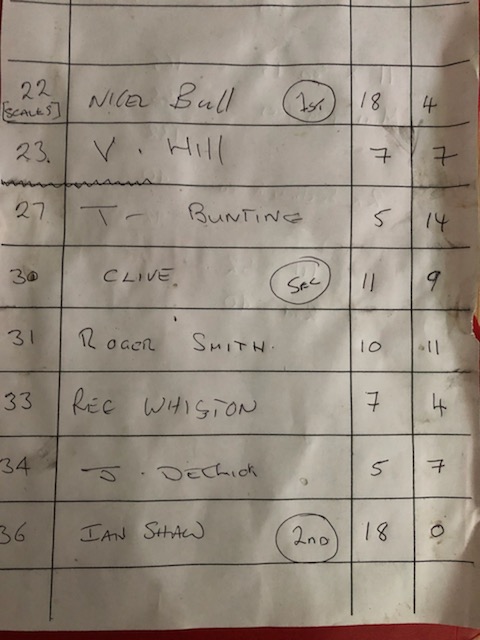 22 NIGEL Bull 1st 18 4
[SCALES]
23. V. Hill 7 7
27 T- BUNTING 5 14
30 CLIVE 11 9
31 ROGER SMITH. 10 11
33 REG WHISTON 7 4
34 J. 5 7
36 IAN SHAW 2ND 18 0